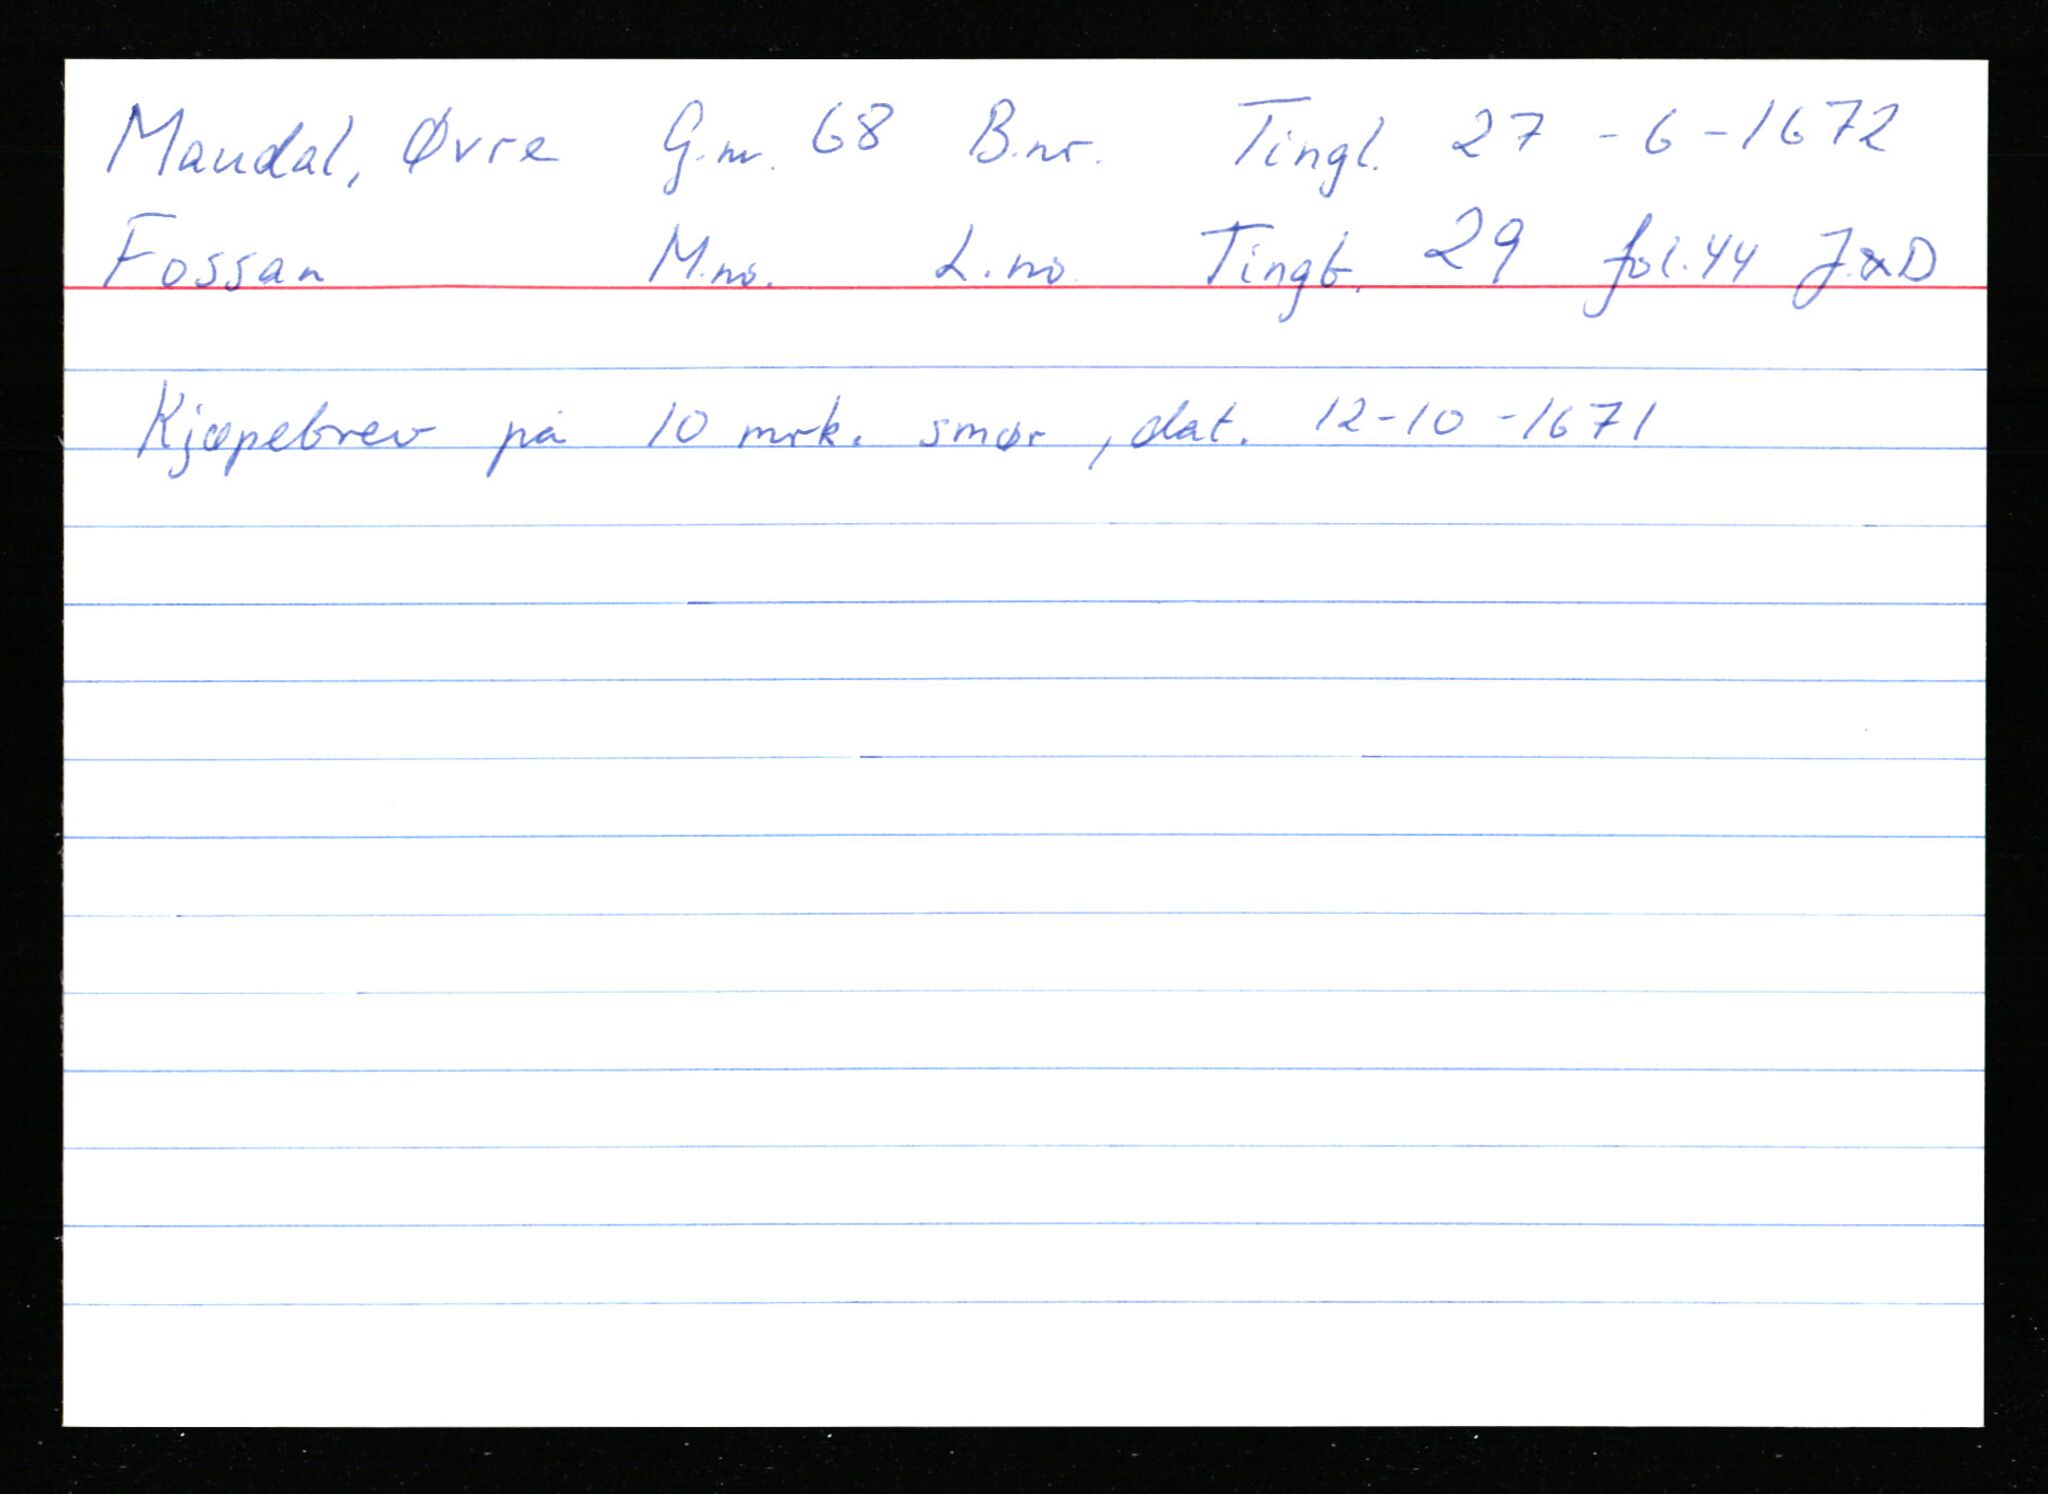 Maudal, Øvre G.nr. 68 B.nr. Tingl. 27-6-1672
Fossan M.no. L.no. Tingb. 29 fol. 44 J&D
Kjøpebrev på 10 mrk. smør, dat. 12-10-1671